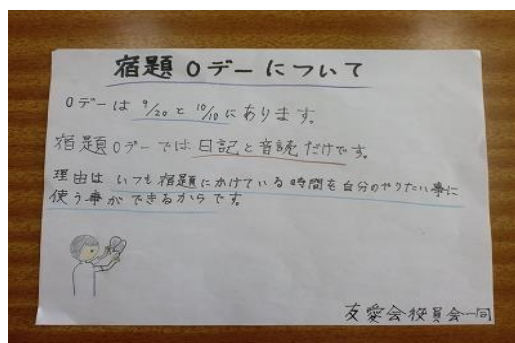 宿題0デーについて
0デーは 9/20と10/10にあります。
宿題0デーでは日記と音読だけです。
理由は いつも宿題にかけている時間を自分のやりたい事に
使う事ができるからです。
友愛会役員会一同